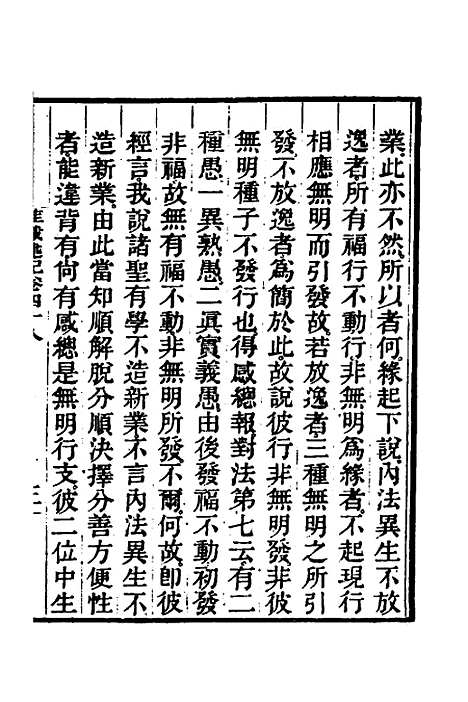 業此亦不然所以者何緣起下說內法異生不放
逸者所有福行不動行非無明爲緣者不起現行
相應無明而引發故若放逸者三種無明之所引
發不放逸者爲簡於此故說彼行非無明發非彼
無明種子不發行也得感總報對法第七云有二
種愚一異熟愚二眞實義愚由後發福不動初發
非福故無有福不動非無明所發不爾何故卽彼
經言我說諸聖有學不造新業不言內法異生不
造新業由此當知順解脫分順決擇分善方便性
者能違背有何有感總是無明行支彼二位中生
記卷四十八